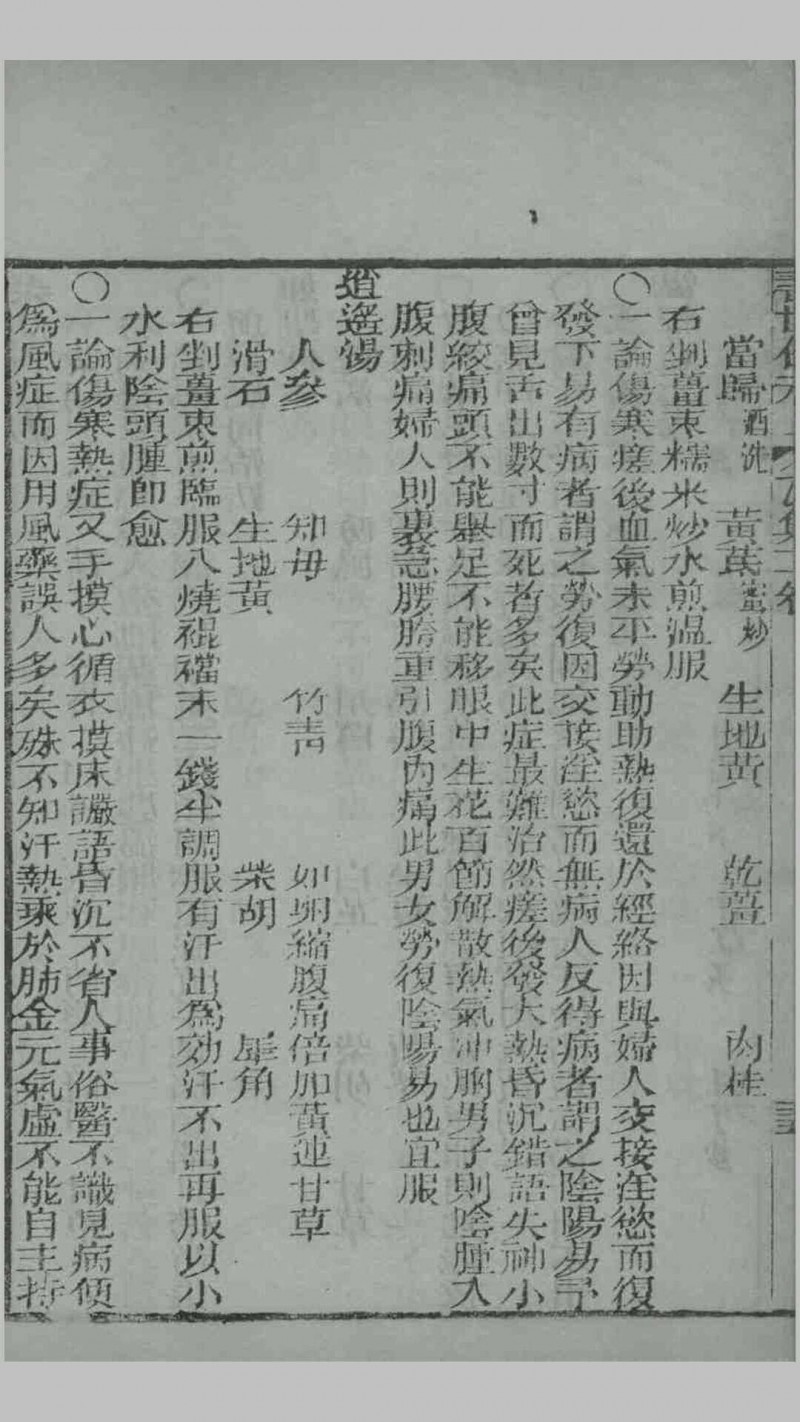 壽世保元 乙集二卷
當歸酒洗 黃芪蜜炒 生地黃 乾薑 肉桂
右剉薑棗糯米炒水煎溫服
〇一論傷寒瘥後血氣未平勞動助熱復還於經絡因與婦人交接淫慾而復
發下易有病者謂之勞復因交接淫慾而無病人反得病者謂之陰陽易予
曾見舌出數寸而死者多矣此症最難治然瘥後發大熱昏沉錯語失神小
腹絞痛頭不能舉足不能移眼中生花百節解散熱氣冲胸男子則陰腫入
腹刺痛婦人則裏急腰胯重引腹內痛此男女勞復陰陽易也宜服
逍遙湯
人參 知母 竹青 如卵縮腹痛倍加黃連甘草
滑石 生地黃 柴胡 犀角
右剉薑棗煎臨服入燒裩襠末一錢半調服有汗出爲効汗不出再服以小
水利陰頭腫即愈
〇一論傷寒熱症叉手摸心循衣摸床讝語昏沉不省人事俗醫不識見病便
爲風症而因用風藥誤人多矣殊不知汗熱乘於肺金元氣虛不能自主持